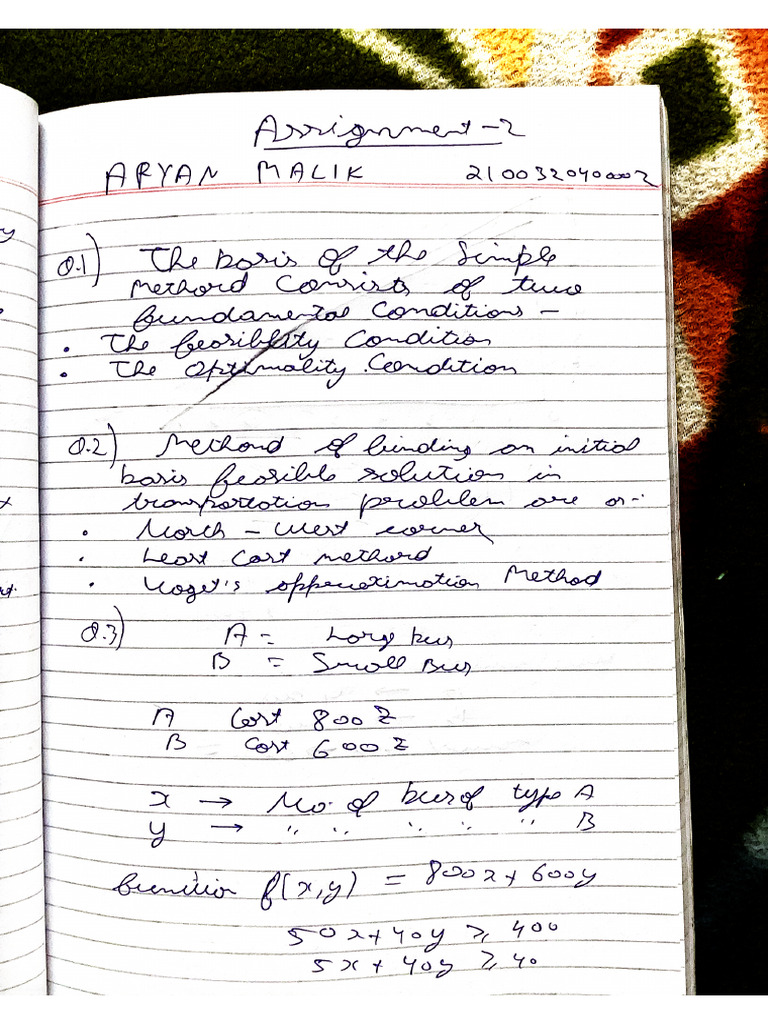 Assignment-2
ARYAN MALIK 210032040002
Q.1) The basis of the Simple
Method Consists of two
fundamental Conditions -
• The feasibility Condition
• The Optimality Condition
Q.2) Method of finding an initial
basis feasible solution in
transportation problem are
• North - West corner
• Least Cost method
• Vogel's approximation Method
Q.3) A = Large bus
B = Small Bus
A Cost 800 Z
B Cost 600 Z
x → No. of bus of type A
y → " " " " " B
function f(x,y) = 800x + 600y
50x + 40y ≥ 400
5x + 40y ≥ 40